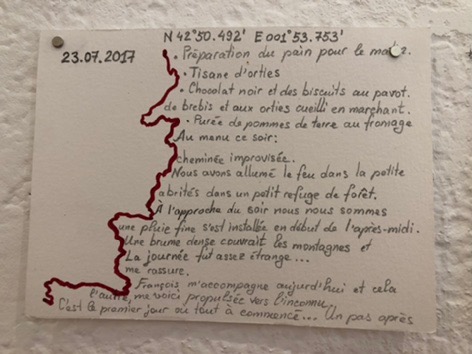 N 42°50.492' E 001°53.753'
23.07.2017
• Préparation du pain pour le
• Tisane d'orties
• Chocolat noir et des biscuits au pavot.
de brebis et aux orties cueilli en marchant.
• Purée de pommes de terre au fromage
Au menu ce soir:
cheminée improvisée.
Nous avons allumé le feu dans la petite
abrités dans un petit refuge de forêt.
À l'approche du soir nous nous sommes
une pluie fine s'est installée en début de l'après-midi.
Une brume dense couvrait les montagnes et
La journée fut assez étrange...
me rassure.
François m'accompagne aujourd'hui et cela
l'autre, me voici propulsée vers l'inconnu.
C'est le premier jour où tout à commencé... Un pas après